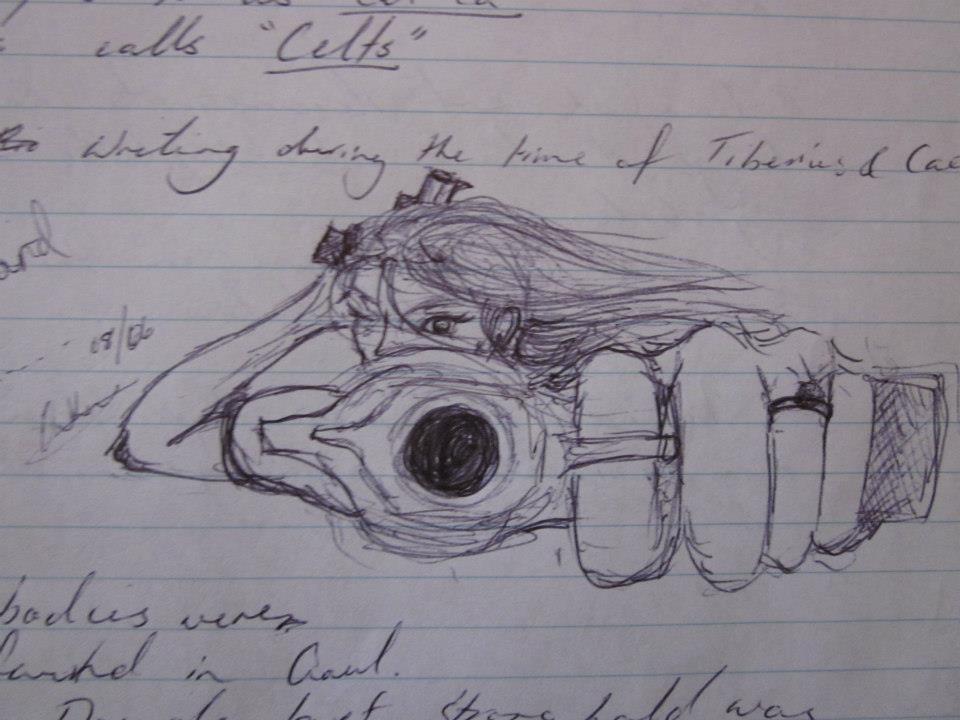 calls "Celts"
Writing during the time of Tiberius & Cae
and
08/06
bodies were
in Gaul.
last strong hold was